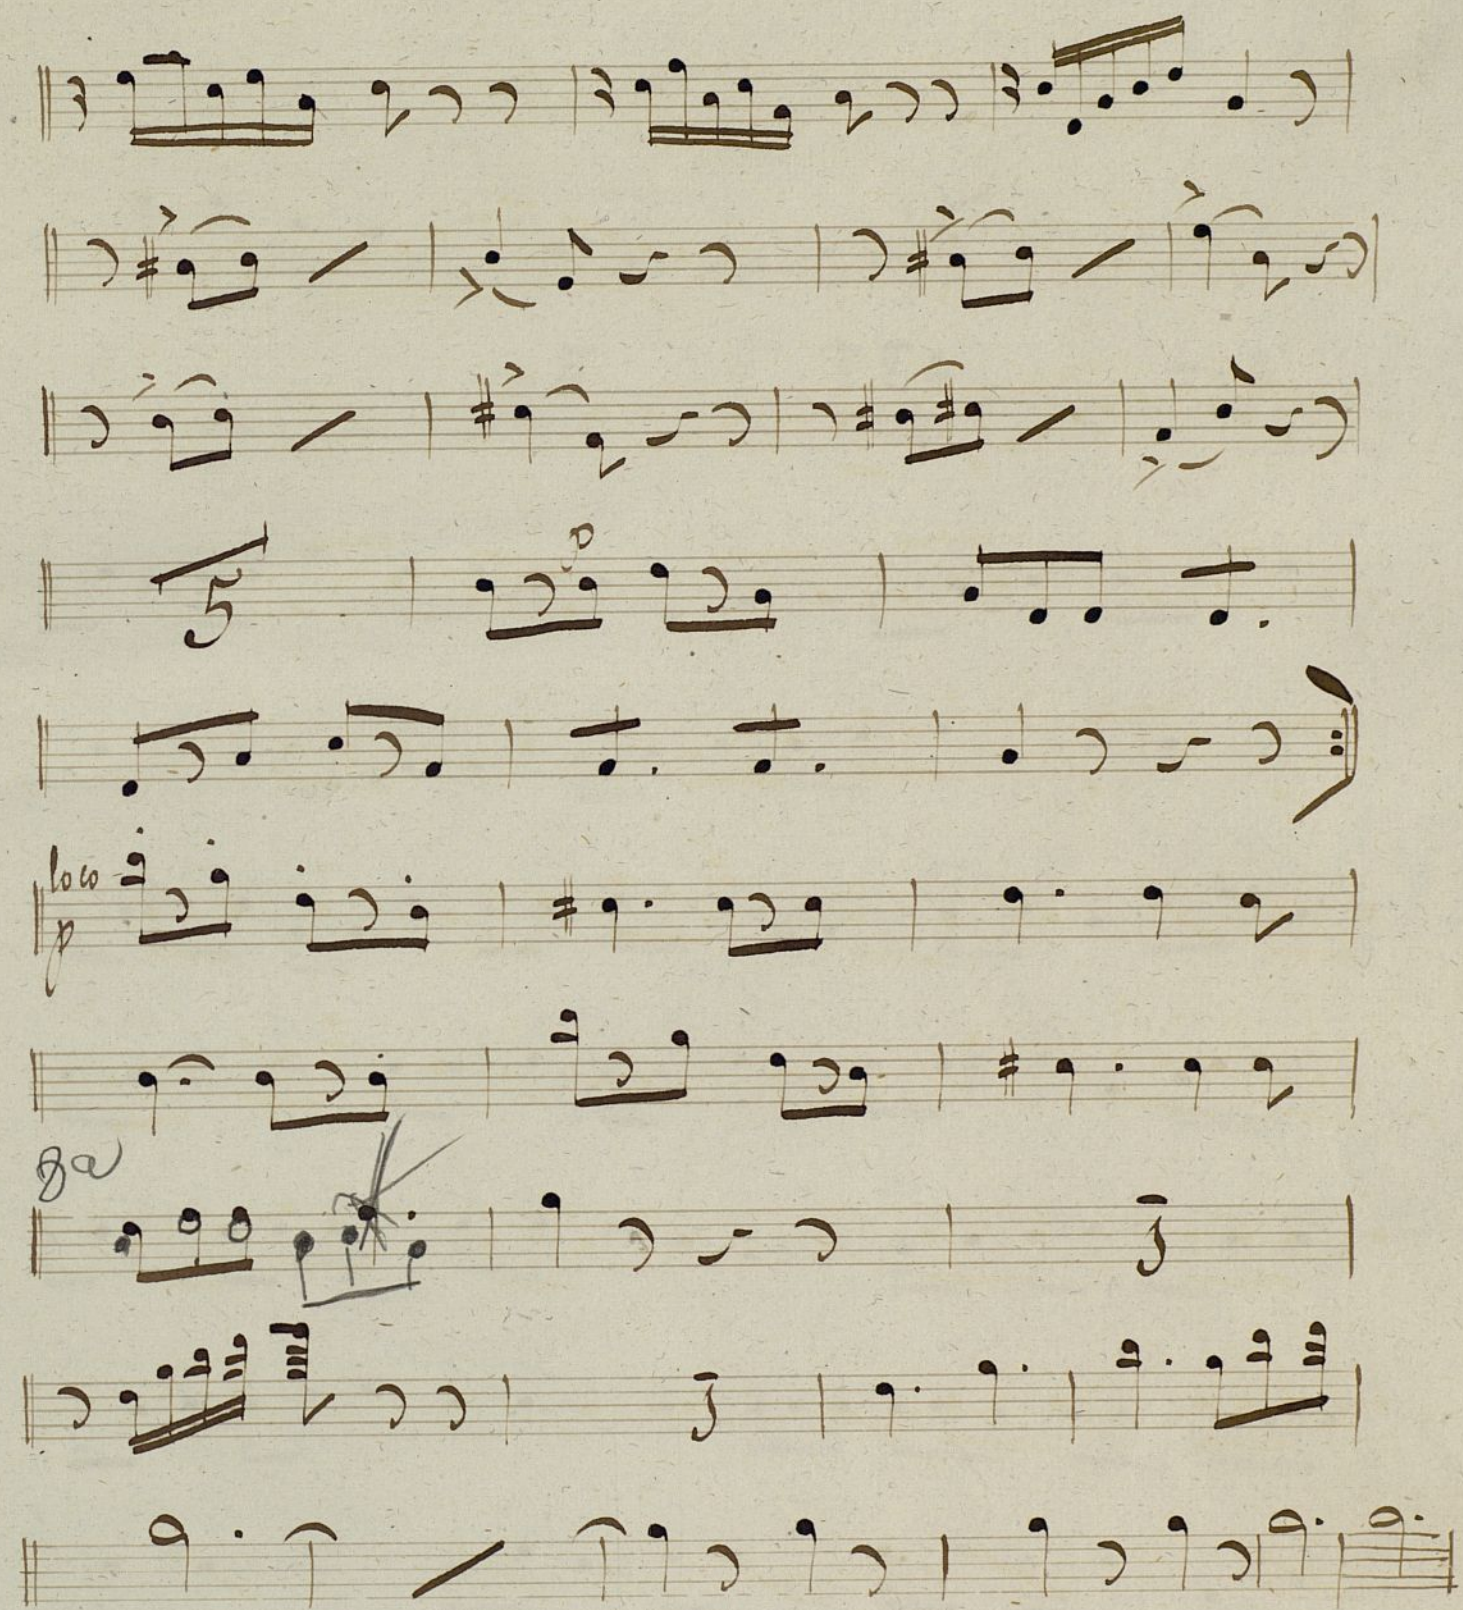 5
p
loco
p
8a